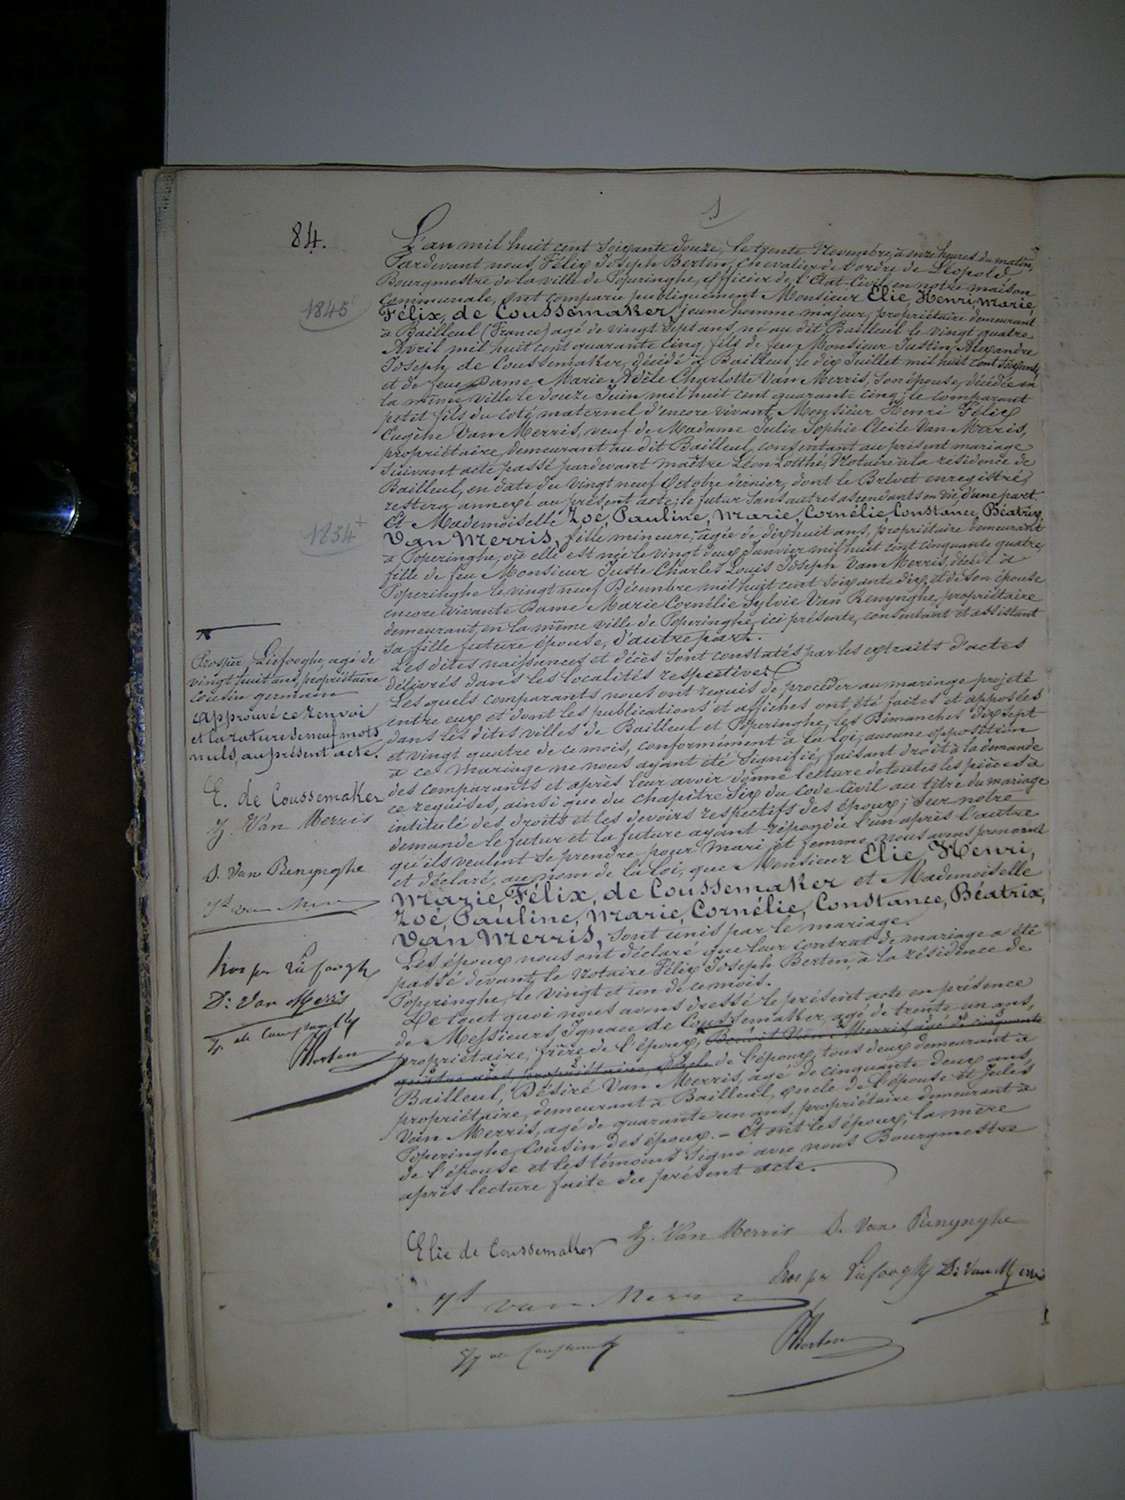 84.
L'an mil huit cent soixante douze, le trente Novembre, à onze heures du matin,
Pardevant nous, Félix Joseph Berten, Chevalier de l'ordre de Léopold,
Bourgmestre de la ville de Poperinghe, officier de l'Etat-Civil, en notre maison
Communale, ont comparu publiquement Monsieur Elie, Henri, Marie,
1845
Félix, de Coussemaker, jeune homme majeur, propriétaire demeurant
à Bailleul (France) agé de vingt sept ans, né au dit Bailleul le vingt quatre
Avril mil huit cent quarante cinq, fils de feu Monsieur Justin Alexandre
Joseph de Coussemaker, décédé à Bailleul, le dix Juillet mil huit cent soixante
et de feue Dame Marie Adèle Charlotte Van Merris, son épouse, décédée en
la même ville le douze Juin mil huit cent quarante cinq; le comparant
petit fils du coté maternel d'encore vivant, Monsieur Henri Félix
Eugène Van Merris, veuf de Madame Julie Sophie Cécile Van Merris,
propriétaire, demeurant au dit Bailleul, consentant au présent mariage
suivant acte passé pardevant maître Léon Lotthé, Notaire à la résidence de
Bailleul, en date du vingt neuf Octobre dernier, dont le Brevet enregistré,
restera annexé au présent acte; le futur sans autres ascendants en vie, d'une part
Et Mademoiselle Zoé, Pauline, Marie, Cornélie, Constance, Béatrix,
1854
Van Merris, fille mineure, agée de dix huit ans, propriétaire demeurant
à Poperinghe, où elle est née le vingt deux Janvier mil huit cent cinquante quatre,
fille de feu Monsieur Juste Charles Louis Joseph Van Merris, décédé à
Poperinghe le vingt neuf Décembre mil huit cent soixante dix et de son épouse
encore vivante Dame Marie Cornélie Sylvie Van Renynghe, propriétaire
demeurant, en la même ville de Poperinghe, ici présente, consentant et assistant
sa fille future épouse, d'autre part.
Les dites naissances et décès sont constatés par les extraits d'actes
délivrés dans les localités respectives.
Les quels comparants nous ont requis de procéder au mariage projeté
entre eux et dont les publications et affiches ont été faites et apposées
dans les dites villes de Bailleul et Poperinghe, les Dimanches dix sept
et vingt quatre de ce mois, conformément à la loi; aucune opposition
à ce mariage ne nous ayant été signifiée, faisant droit à la demande
des comparants et après leur avoir donné lecture de toutes les pièces à
ce requises, ainsi que du chapitre six du Code Civil au titre du mariage
intitulé des droits et les devoirs respectifs des époux; sur notre
demande le futur et la future ayant répondu l'un après l'autre
qu'ils veulent se prendre pour mari et femme, nous avons prononcé
et déclaré, au nom de la loi, que Monsieur Elie, Henri,
Marie, Félix, de Coussemaker et Mademoiselle
Zoé, Pauline, Marie, Cornélie, Constance, Béatrix,
Van Merris, sont unis par le mariage.
Les époux nous ont déclaré que leur contrat de mariage a été
passé devant le Notaire Félix Joseph Berten, à la résidence de
Poperinghe, le vingt et un de ce mois.
De tout quoi nous avons dressé le présent acte en présence
de Messieurs Ignace de Coussemaker, agé de trente un ans,
propriétaire, frère de l'époux, Benoit Van Merris agé de cinquante
quatre ans, propriétaire, oncle de l'époux, tous deux demeurant à
Bailleul, Désiré Van Merris, agé de cinquante deux ans,
propriétaire, demeurant à Bailleul, oncle de l'épouse et Jules
Van Merris, agé de quarante un ans, propriétaire demeurant à
Poperinghe, Cousin des époux. — Et ont les époux, la mère
de l'épouse et les témoins signé avec nous Bourgmestre
après lecture faite du présent acte.
Prosper Liefooghe, agé de
vingt huit ans, propriétaire
cousin germain
approuvé ce renvoi
et la rature de neuf mots
nuls, au présent acte.
E. de Coussemaker
Z. Van Merris
S. Van Renynghe
Js van Merris
Prosper Liefooghe
D: Van Merris
Berten
Elie de Coussemaker Z. Van Merris S. Van Renynghe
Prosper Liefooghe D: Van Merris
Js van Merris
Berten